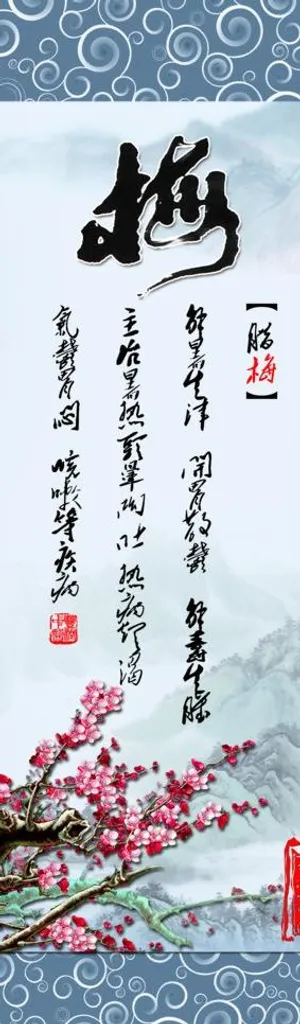 梅
【腊梅】
解暑生津 開胃散鬱 解毒生肌
主治暑热頭暈呕吐 热病烦渴
氣鬱胃闷 咳嗽等疾病